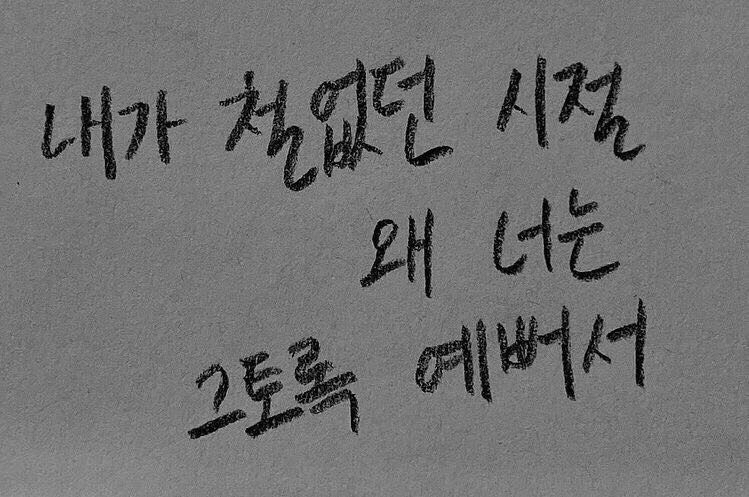 내가 철없던 시절
왜 너는
그토록 예뻐서